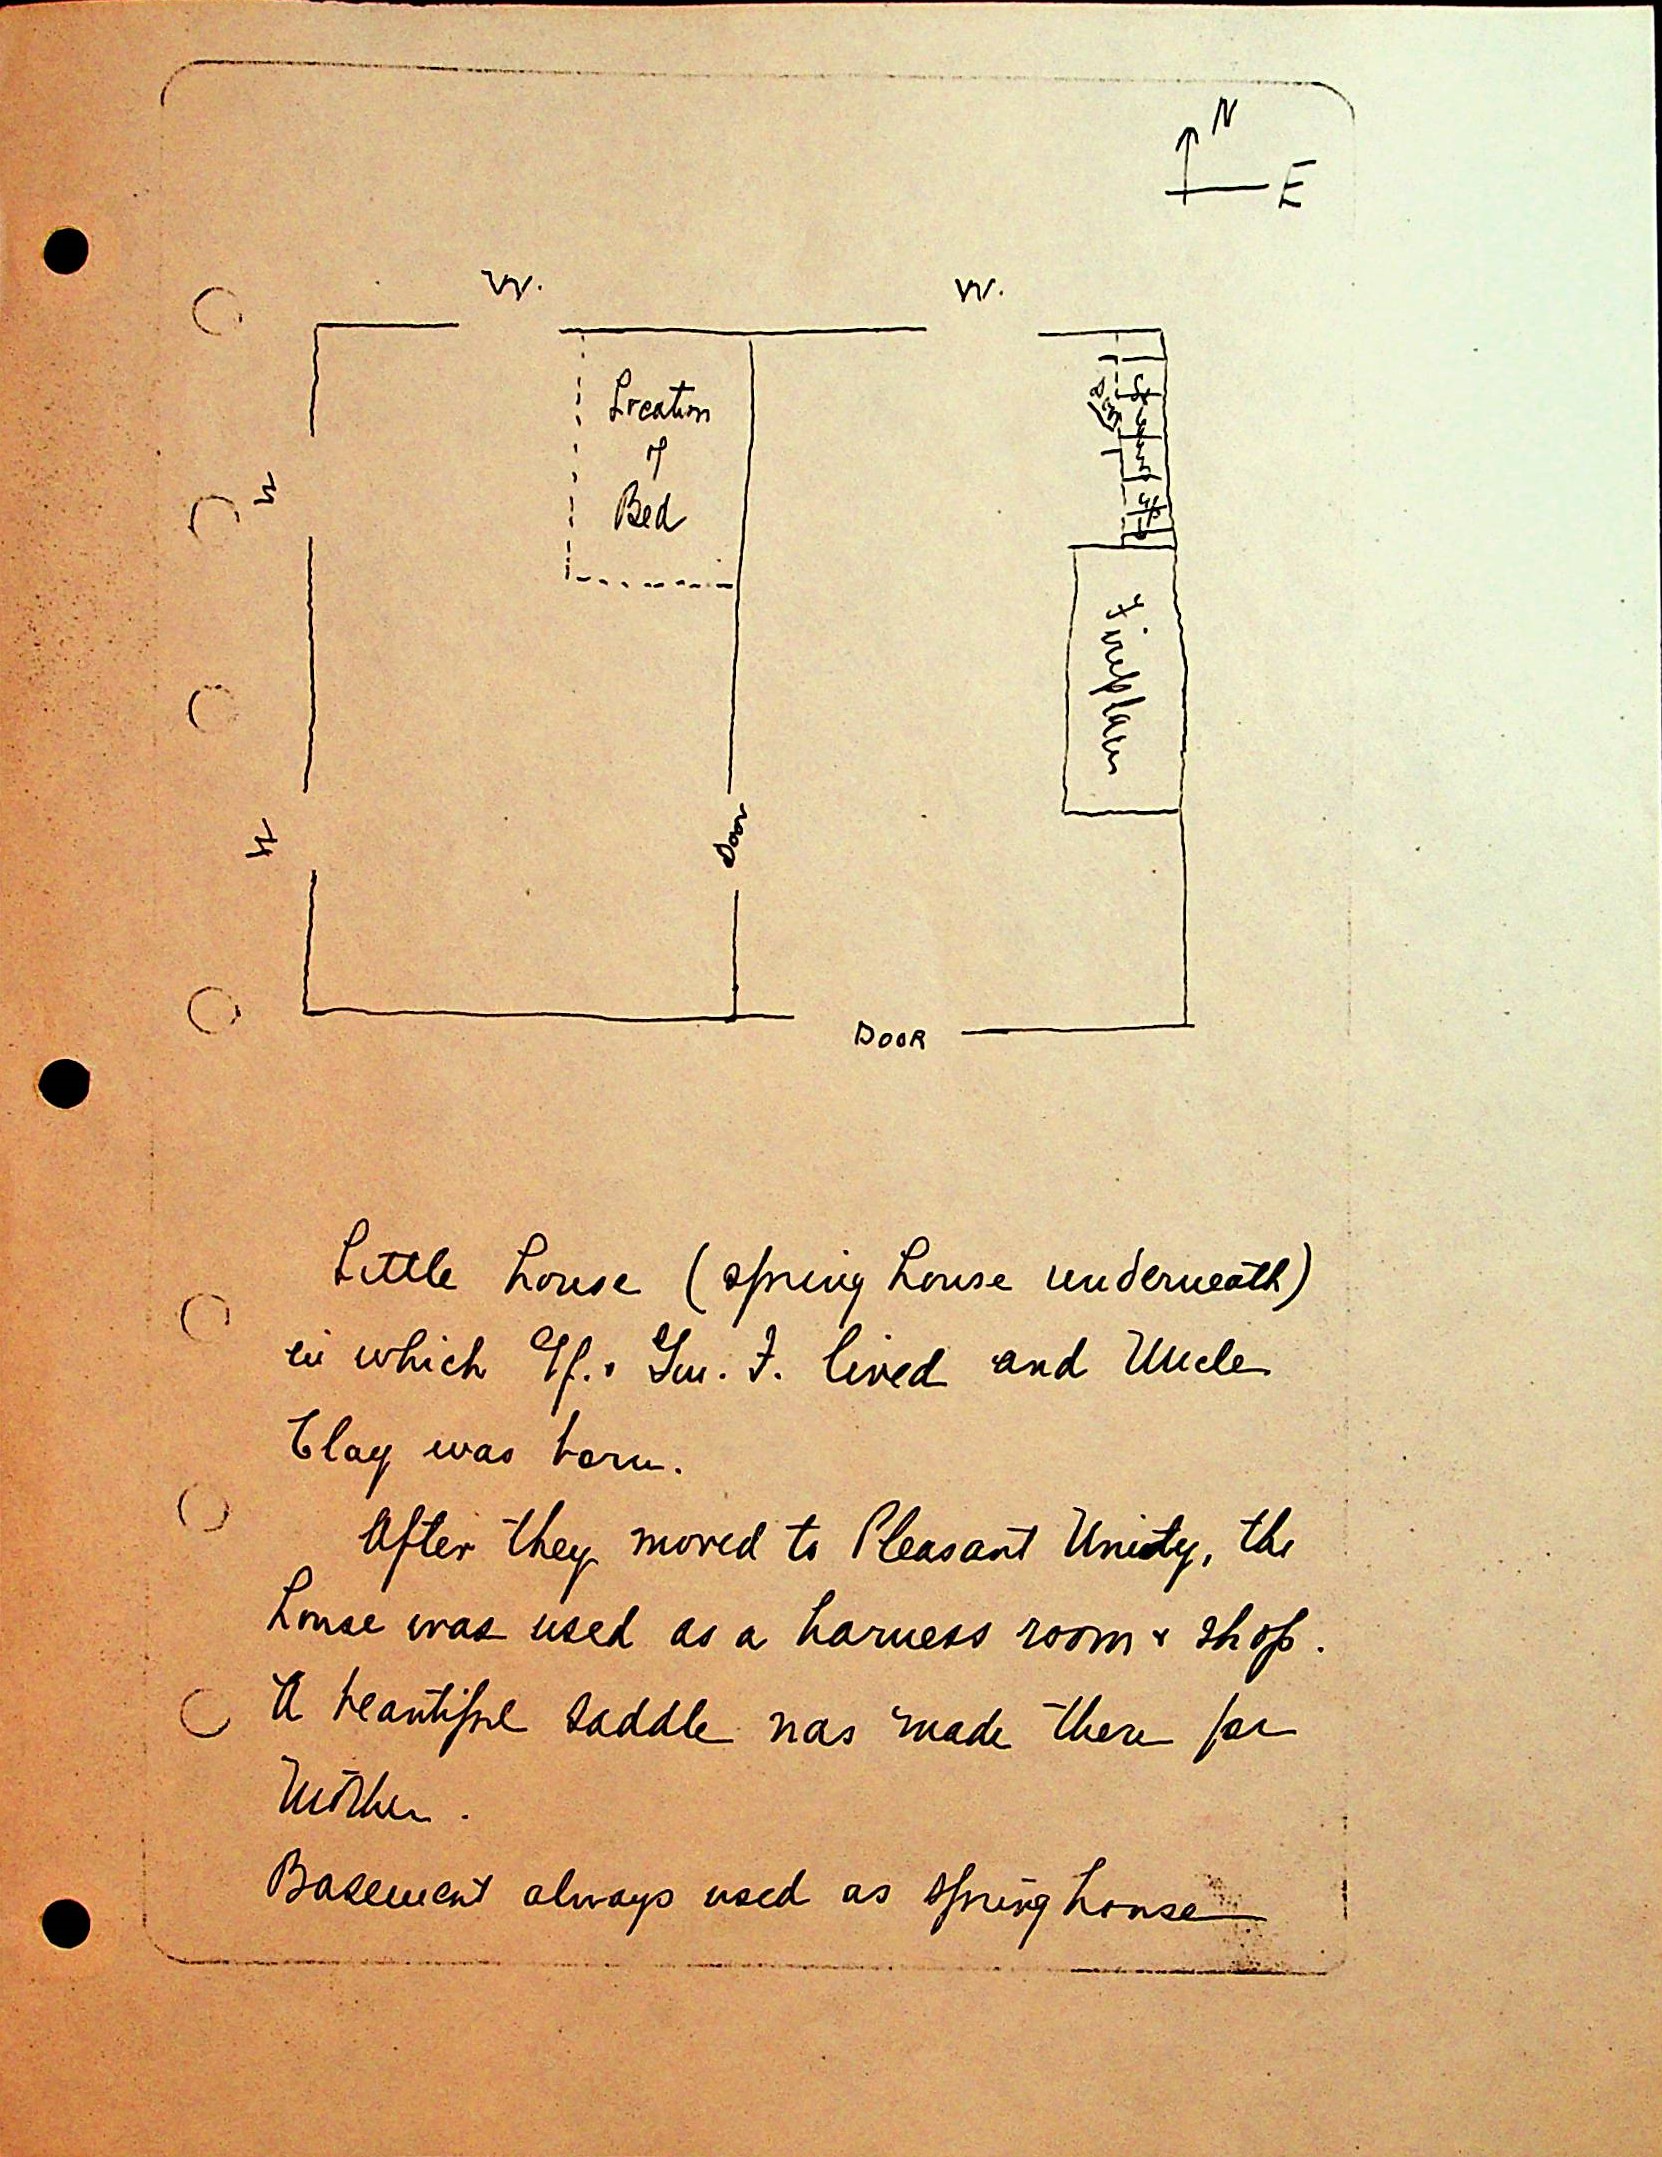 N
E
W.
W.
Location
of
Bed
Door
Steps
up
W
Fireplace
W
Door
DOOR
Little house (spring house underneath)
in which Gf. & Gm. F. lived and Uncle
Clay was born.
After they moved to Pleasant Unity, the
house was used as a harness room & shop.
A beautiful saddle was made there for
Mother.
Basement always used as spring house